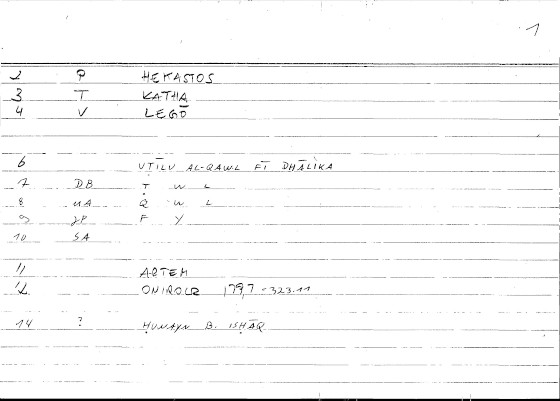 1
2 P HEKASTOS
3 T KATHA
4 V LEGŌ
6 UṬĪLU AL-QAWL FĪ DHĀLIKA
7 DB Ṭ W L
8 UA Q W L
9 JP F Y
10 SA
11 ARTEM
12 ONIROCR 179,7 - 323.11
14 ? ḤUNAYN B. ISḤĀQ